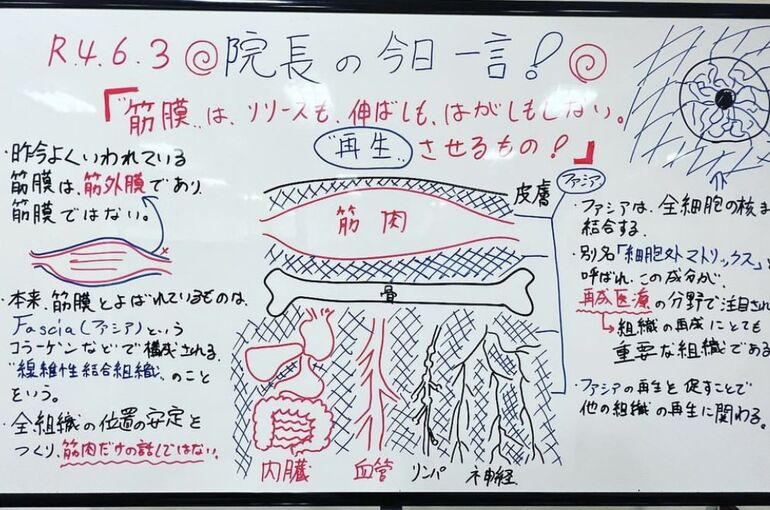 R.4.6.3 ◎院長の今日一言!◎
「"筋膜"は、リリースも、伸ばしも、はがしもしない。
"再生"させるもの!」
・昨今よくいわれている
筋膜は、筋外膜であり、
筋膜ではない。
・本来、筋膜とよばれているものは、
Fascia(ファシア)という
コラーゲンなどで構成される
"線維性結合組織"のこと
をいう。
・全組織の位置の安定を
つくり、筋肉だけの話しではない。
皮膚
ファシア
筋肉
骨
内臓
血管
リンパ
神経
・ファシアは、全細胞の核ま
結合する。
・別名「細胞外マトリックス」と
呼ばれ、この成分が、
再成医療の分野で注目され
→組織の再成にとても
重要な組織である
・ファシアの再生を促すことで
他の組織の再生に関わる。